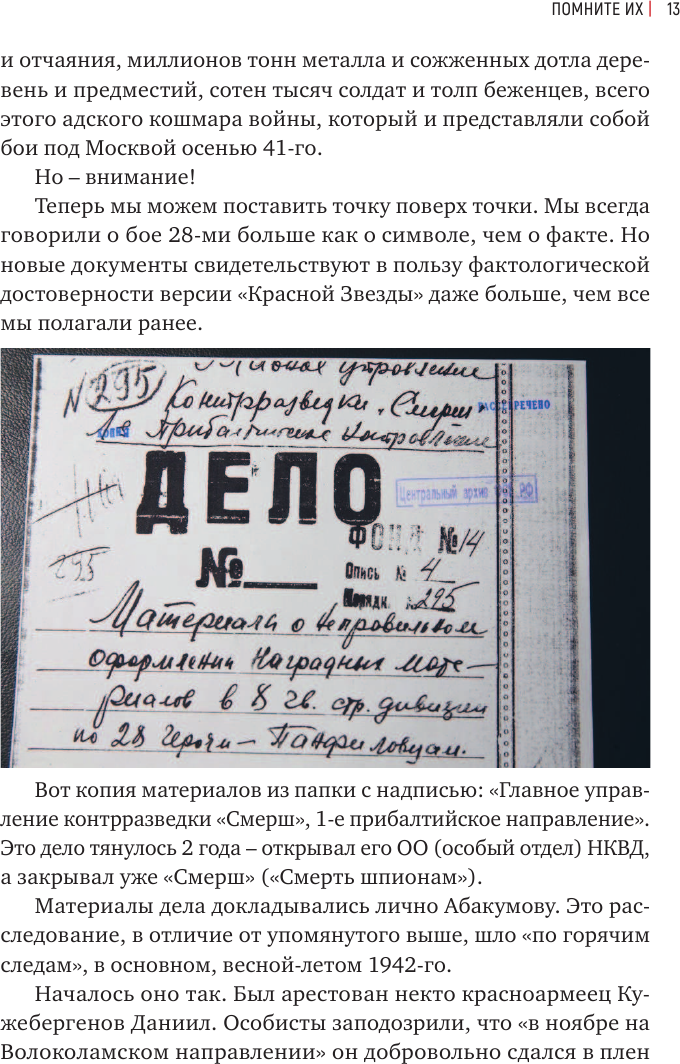 ПОМНИТЕ ИХ | 13
и отчаяния, миллионов тонн металла и сожженных дотла дере-
вень и предместий, сотен тысяч солдат и толп беженцев, всего
этого адского кошмара войны, который и представляли собой
бои под Москвой осенью 41-го.
Но – внимание!
Теперь мы можем поставить точку поверх точки. Мы всегда
говорили о бое 28-ми больше как о символе, чем о факте. Но
новые документы свидетельствуют в пользу фактологической
достоверности версии «Красной Звезды» даже больше, чем все
мы полагали ранее.
управление
N 295 Контрразведки „Смерш"
РАССЕКРЕЧЕНО
КОПИЯ
Прибалтийское
ДЕЛО
Центральный архив РФ
ФОНД №14
№
295
Опись № 4
Порядк. № 295
Материалы о неправильном
оформлении наградных мате-
риалов в 8 гв. стр. дивизии
по 28 героям – Панфиловцам.
Вот копия материалов из папки с надписью: «Главное управ-
ление контрразведки «Смерш», 1-е прибалтийское направление».
Это дело тянулось 2 года – открывал его ОО (особый отдел) НКВД,
а закрывал уже «Смерш» («Смерть шпионам»).
Материалы дела докладывались лично Абакумову. Это рас-
следование, в отличие от упомянутого выше, шло «по горячим
следам», в основном, весной-летом 1942-го.
Началось оно так. Был арестован некто красноармеец Ку-
жебергенов Даниил. Особисты заподозрили, что «в ноябре на
Волоколамском направлении» он добровольно сдался в плен